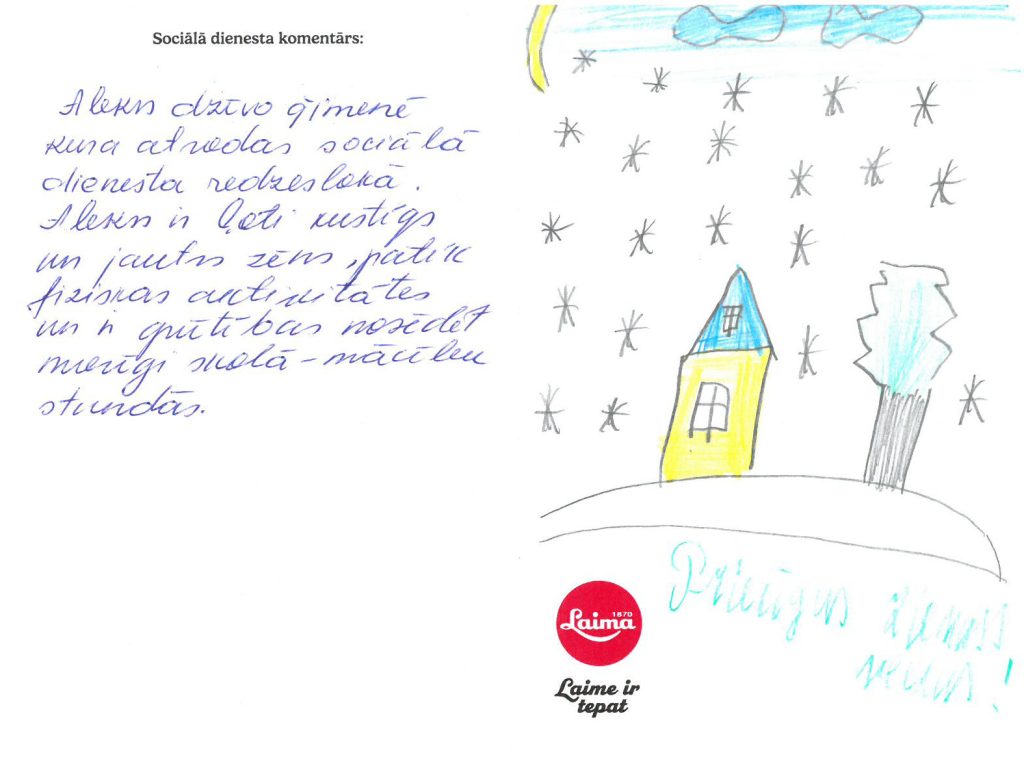 Sociālā dienesta komentārs:
Alekss dzīvo ģimenē
kura atrodas sociālā
dienesta redzeslokā.
Alekss ir ļoti kustīgs
un jautrs zēns, patīk
fiziskas aktivitātes
un ir grūtības nosēdēt
mierīgi skolā - mācību
stundās.
1870
Laima
Laime ir
tepat
Priecīgus
!